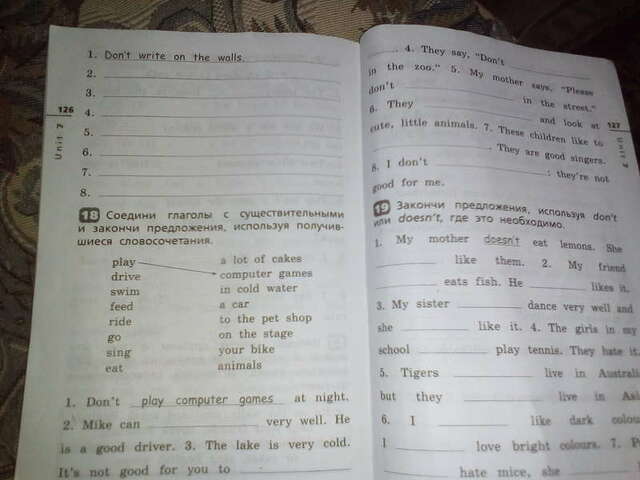 1. Don't write on the walls.
2.
3.
126
Unit 7
4.
5.
6.
7.
8.
18 Соедини глаголы с существительными
и закончи предложения, используя получив-
шиеся словосочетания.
play a lot of cakes
drive computer games
swim in cold water
feed a car
ride to the pet shop
go on the stage
sing your bike
eat animals
1. Don't play computer games at night.
2. Mike can very well. He
is a good driver. 3. The lake is very cold.
It's not good for you to
. 4. They say, "Don't
in the zoo." 5. My mother says, "Please
don't in the street."
6. They and look at
cute, little animals. 7. These children like to
127
. They are good singers.
8. I don't : they're not
good for me.
19 Закончи предложения, используя don't
или doesn't, где это необходимо.
1. My mother doesn't eat lemons. She
like them. 2. My friend
eats fish. He likes it.
3. My sister dance very well and
she like it. 4. The girls in my
school play tennis. They hate it.
5. Tigers live in
but they live in
6. I like dark
I love bright colours. 7.
hate mice, she